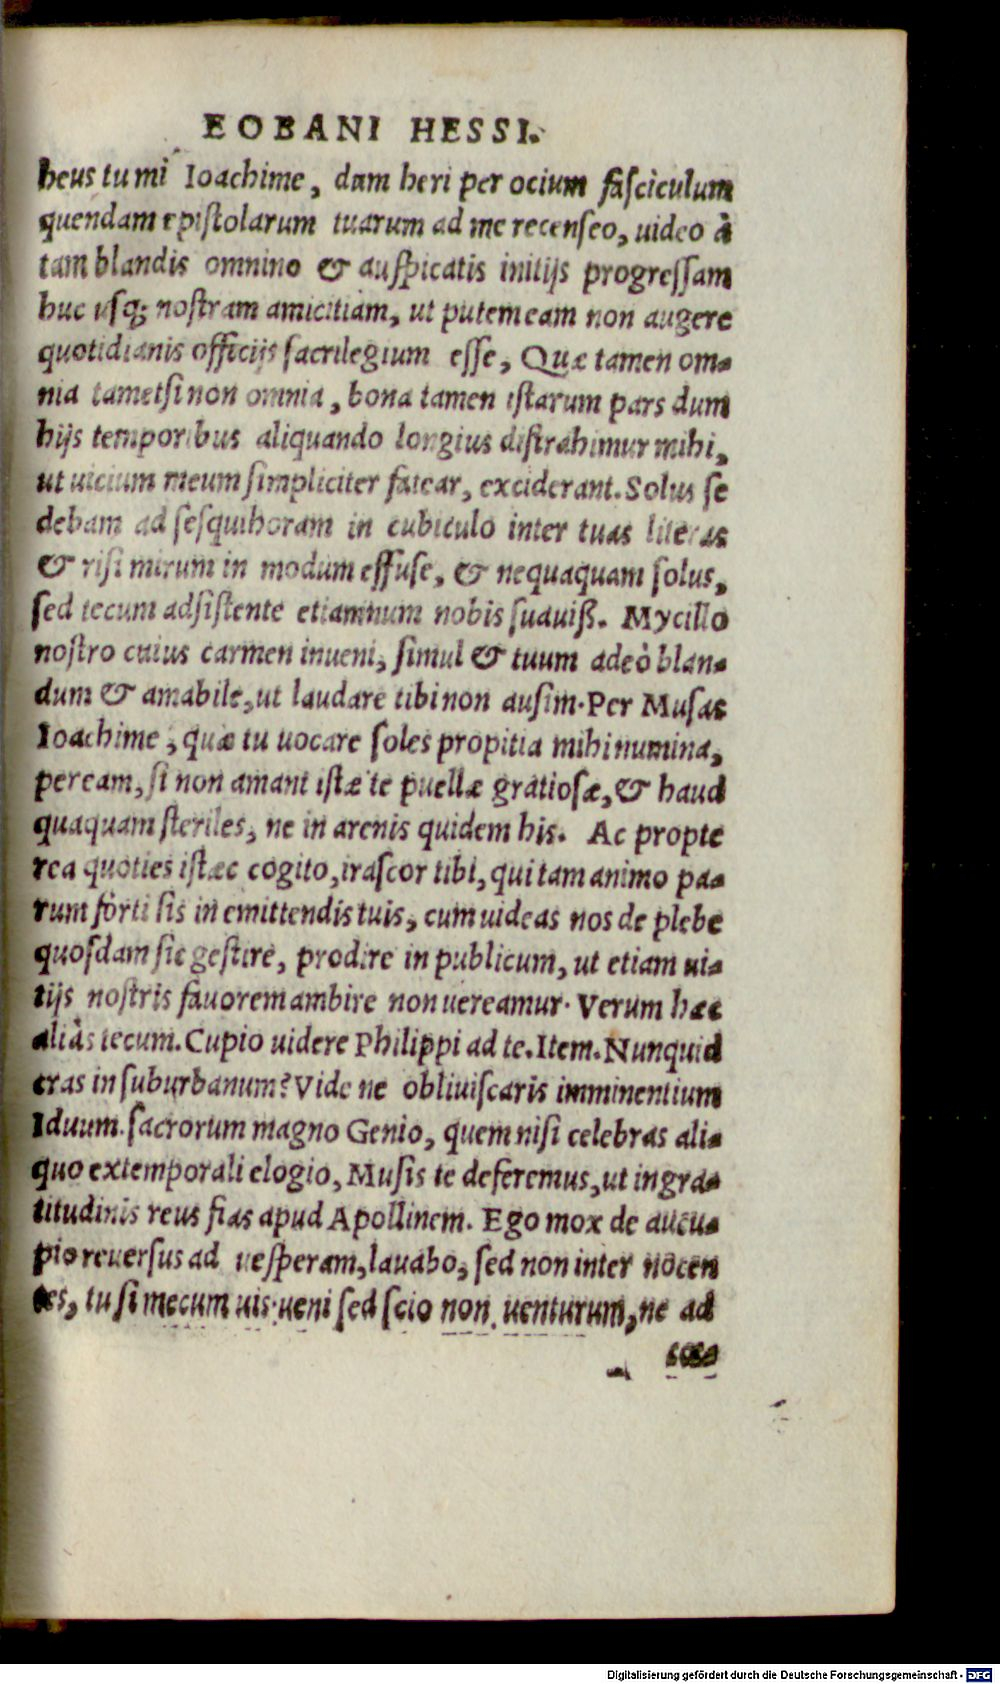 EOBANI HESSI.
heus tu mi Ioachime, dum heri per ocium fasciculum
quendam epistolarum tuarum ad me recenseo, uideo à
tam blandis omnino & auspicatis initijs progressam
huc usq; nostram amicitiam, ut putem eam non augere
quotidianis officijs sacrilegium esse, Quæ tamen om-
nia tametsi non omnia, bona tamen istarum pars dum
hijs temporibus aliquando longius distrahimur mihi,
ut uicium meum simpliciter fatear, exciderant. Solus se
debam ad sesquihoram in cubiculo inter tuas literas
& risi mirum in modum effuse, & nequaquam solus,
sed tecum adsistente etiamnum nobis suauiß. Mycillo
nostro cuius carmen inueni, simul & tuum adeò blan-
dum & amabile, ut laudare tibi non ausim. Per Musas
Ioachime, quæ tu uocare soles propitia mihi numina,
peream, si non amant istæ te puellæ gratiosæ, & haud
quaquam steriles, ne in arenis quidem his. Ac propte
rea quoties istæc cogito, irascor tibi, qui tam animo pa-
rum forti sis in emittendis tuis, cum uideas nos de plebe
quosdam sic gestire, prodire in publicum, ut etiam ui-
tijs nostris fauorem ambire non uereamur. Verum hæc
aliàs tecum. Cupio uidere Philippi ad te. Item. Nunquid
cras in suburbanum? Vide ne obliuiscaris imminentium
Iduum. sacrorum magno Genio, quem nisi celebras ali-
quo extemporali elogio, Musis te deferemus, ut ingra-
titudinis reus fias apud Apollinem. Ego mox de aucu-
pio reuersus ad uesperam, lauabo, sed non inter nocen
tes, tu si mecum uis. ueni sed scio non uenturum, ne ad
Digitalisierung gefördert durch die Deutsche Forschungsgemeinschaft - DFG